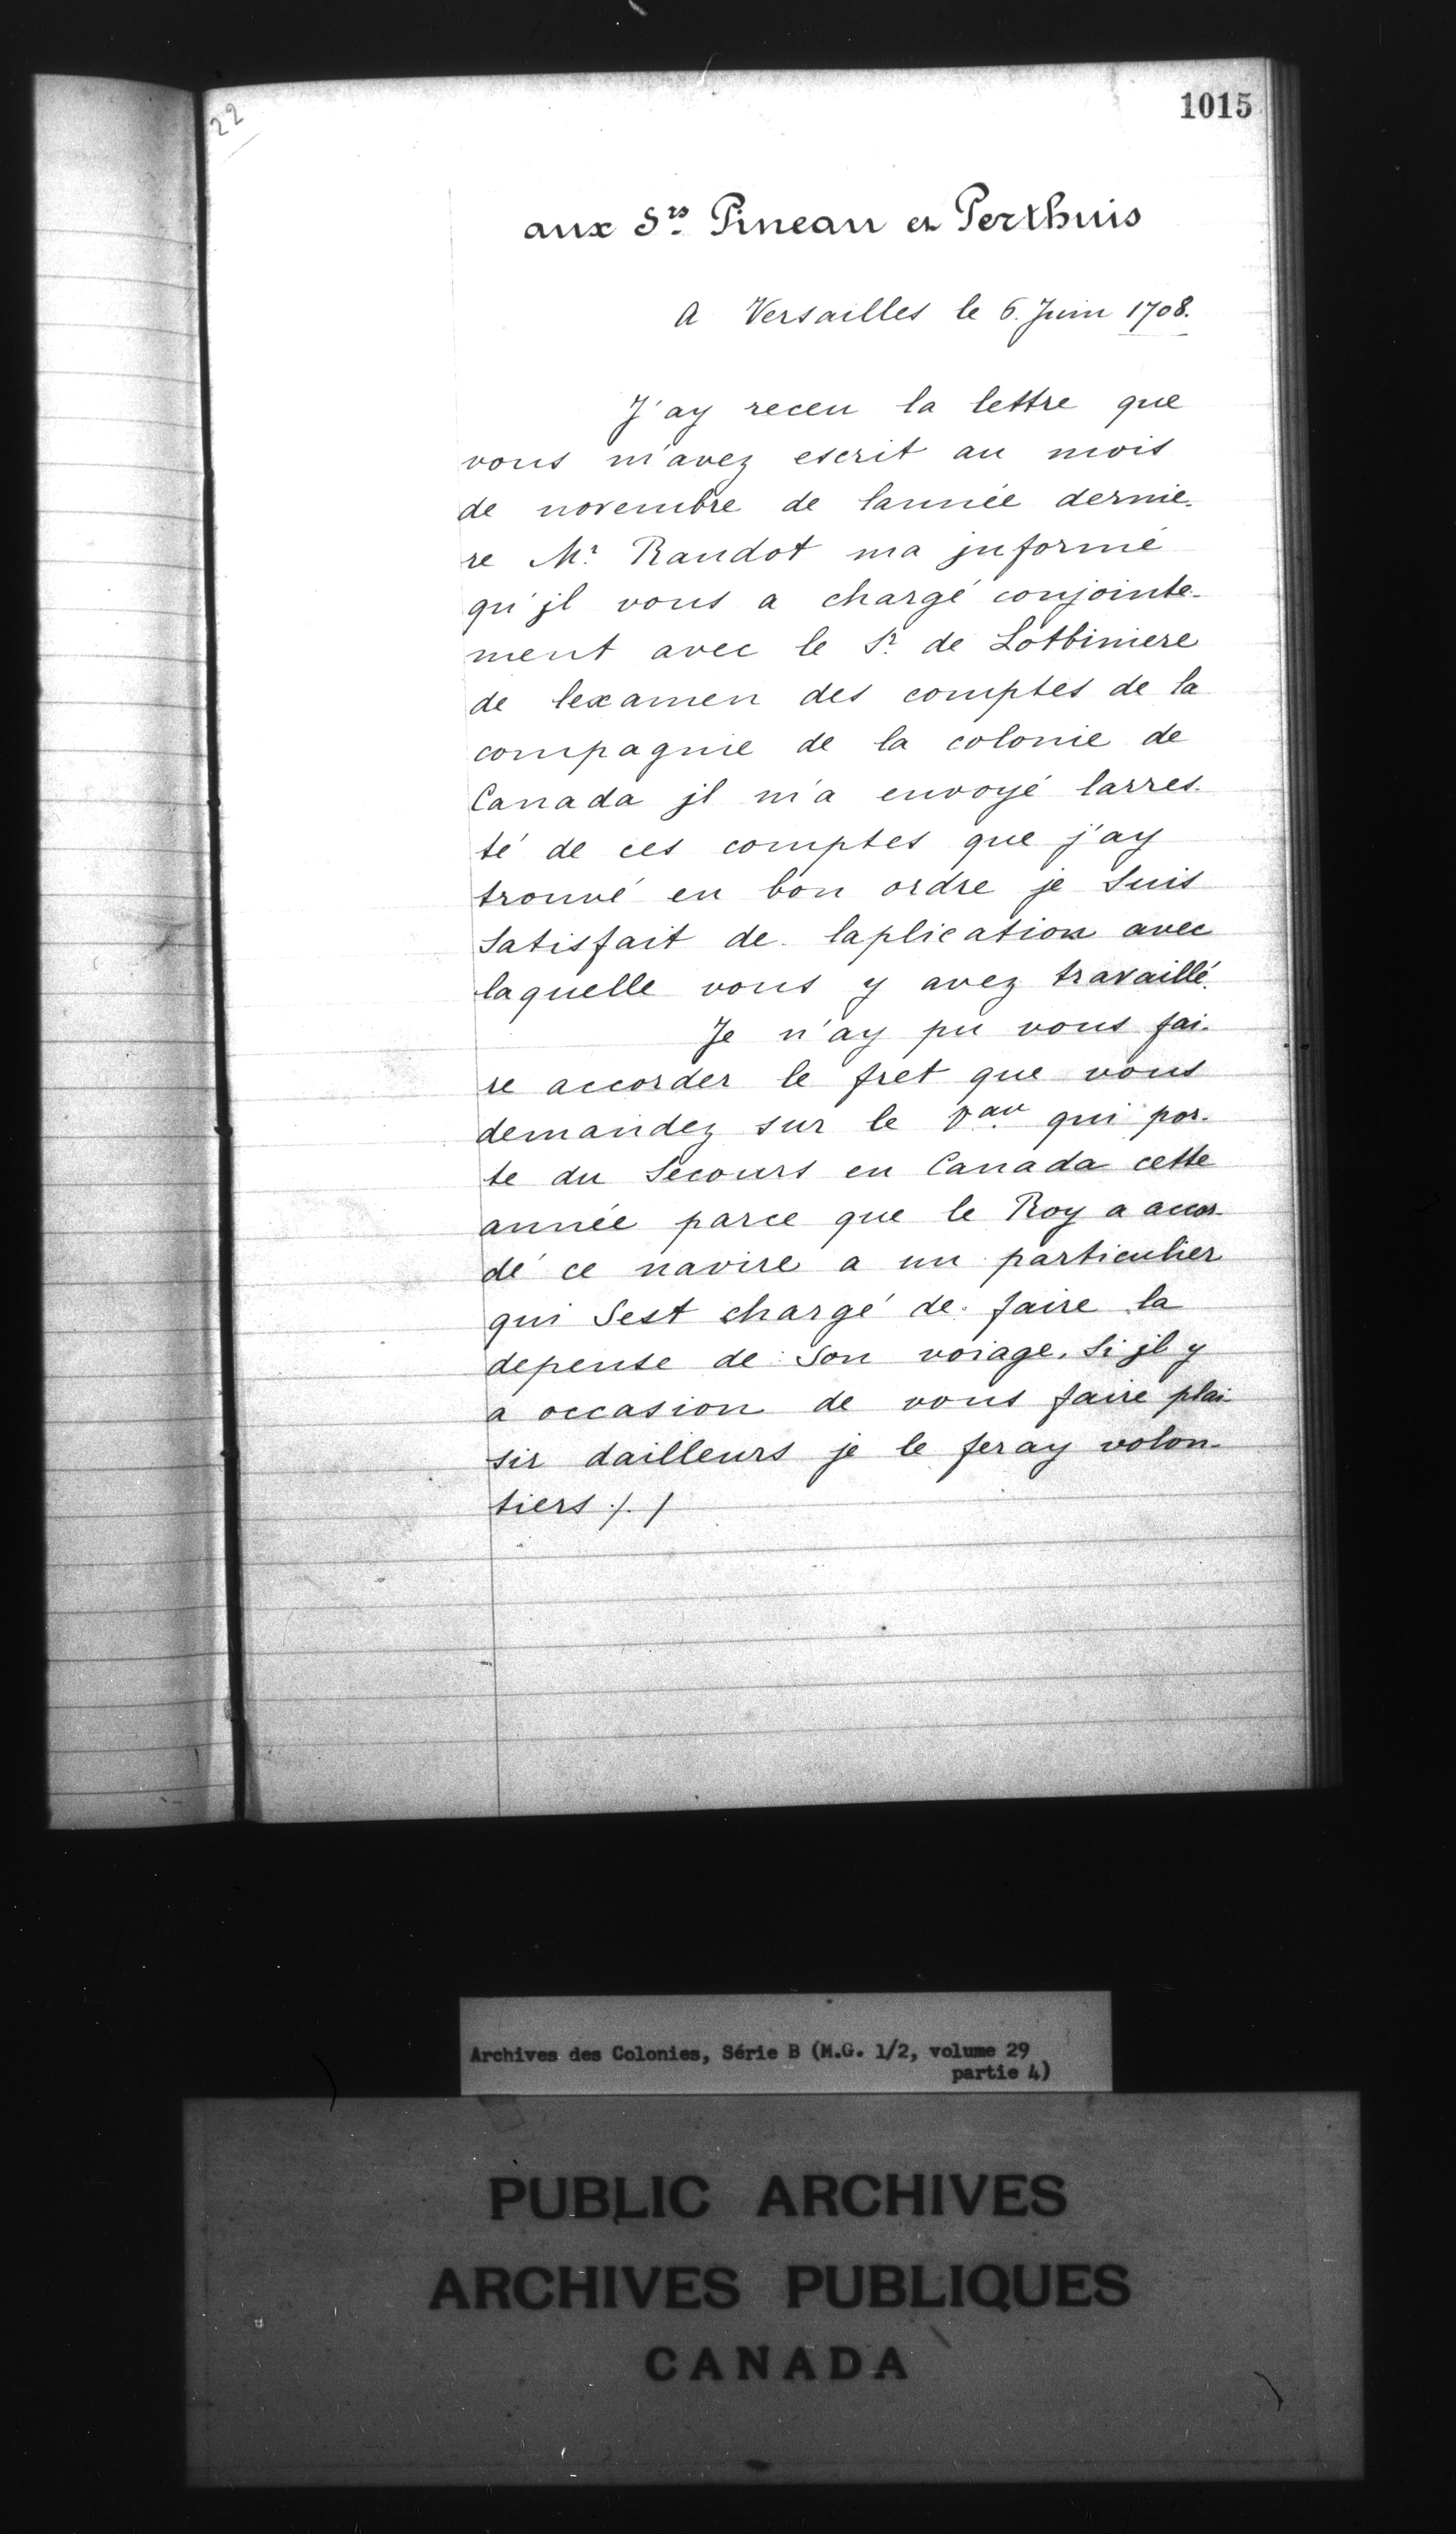 22
1015
aux Srs Pineau et Perthuis
A Versailles le 6. Juin 1708.
J'ay receu la lettre que
vous m'avez escrit au mois
de novembre de lannée dernie-
re Mr Raudot ma jnformé
qu'jl vous a chargé conjointe-
ment avec le Sr de Lotbiniere
de lexamen des comptes de la
compagnie de la colonie de
Canada jl m'a envoyé larres-
té de ces comptes que j'ay
trouvé en bon ordre je Suis
Satisfait de laplication avec
laquelle vous y avez travaillé.
Je n'ay pu vous fai-
re accorder le fret que vous
demandez sur le Vau qui por-
te du Secours en Canada cette
année parce que le Roy a accor-
dé ce navire a un particulier
qui Sest chargé de faire la
depense de Son voiage. Si jl y
a occasion de vous faire plai-
sir dailleurs je le feray volon-
tiers /. /
Archives des Colonies, Série B (M.G. 1/2, volume 29
partie 4)
PUBLIC ARCHIVES
ARCHIVES PUBLIQUES
CANADA